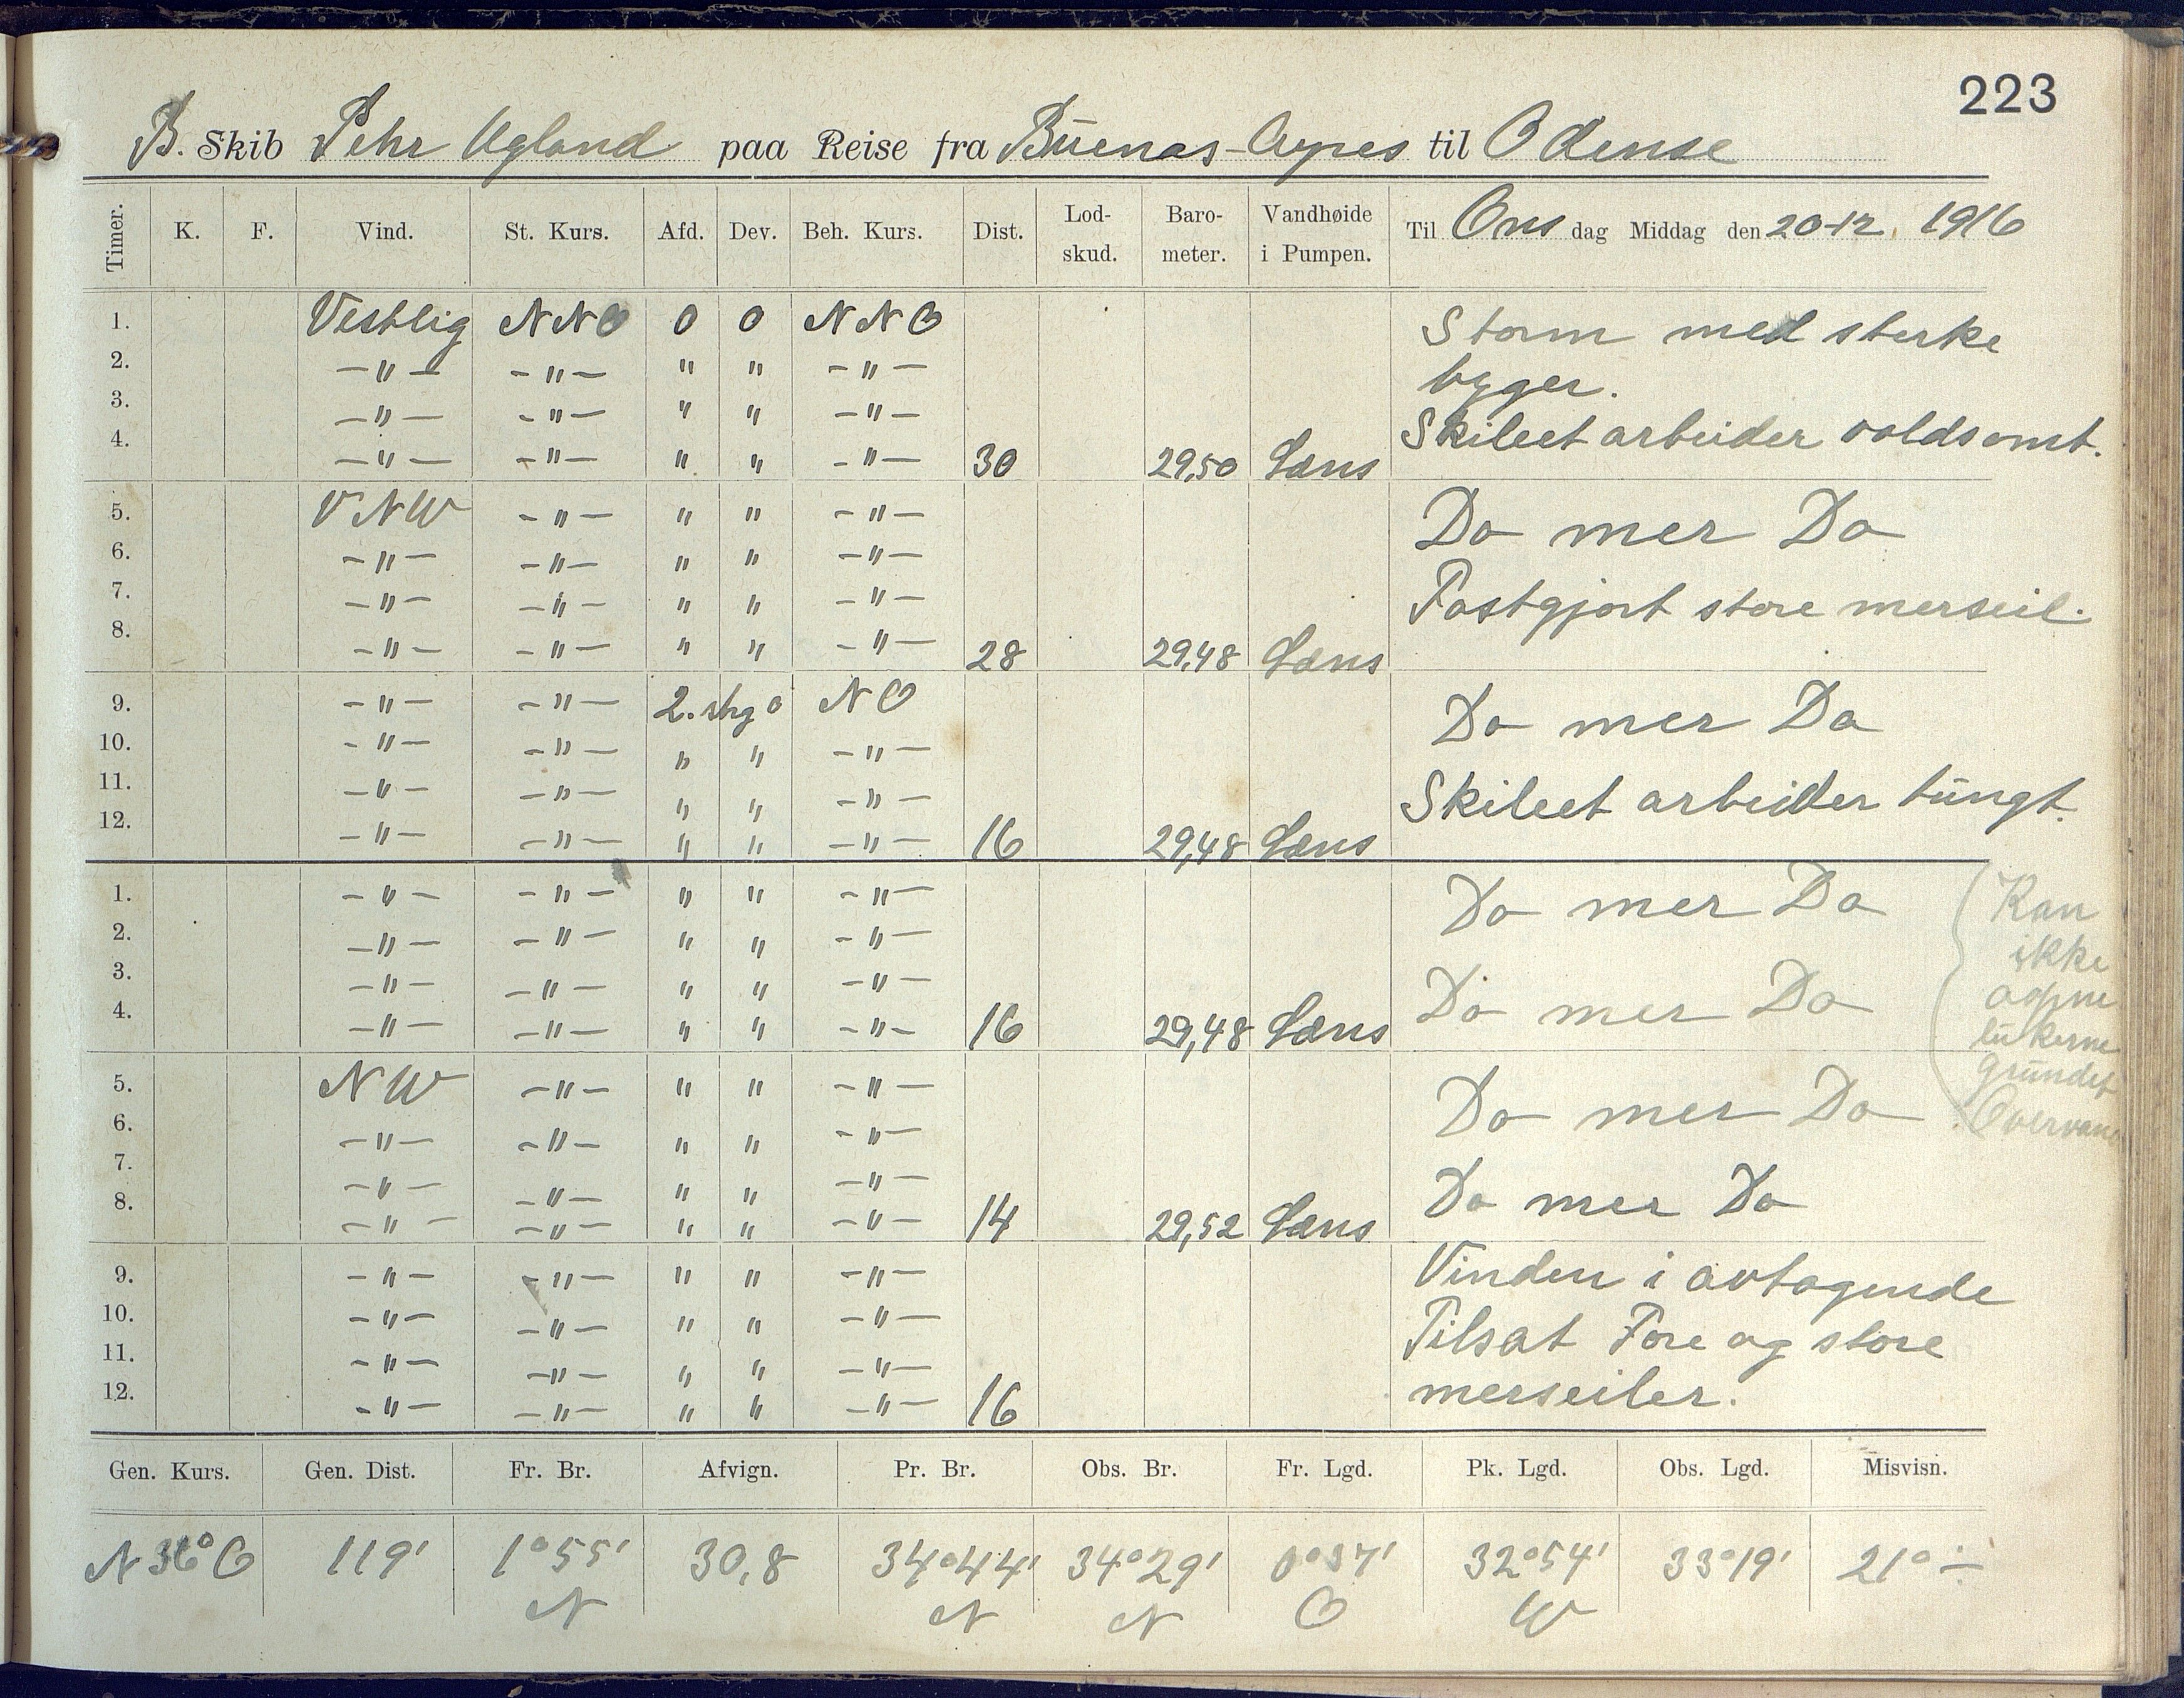 223
B. Skib Pehr Ugland paa Reise fra Buenas-Ayres til Odense
Timer. K. F. Vind. St. Kurs. Afd. Dev. Beh. Kurs. Dist. Lod-skud. Baro-meter. Vandhøide i Pumpen. Til Ons dag Middag den 20-12. 1916
1. Vestlig NNO 0 0 NNO Storm med sterke
2. -"- -"- " " -"- byger.
3. -"- -"- " " -"- Skibet arbeider voldsomt.
4. -"- -"- " " -"- 30 29,50 Læns
5. VNW -"- " " -"- Do mer Do
6. -"- -"- " " -"-
7. -"- -"- " " -"- Fastgjort store merseil.
8. -"- -"- " " -"- 28 29,48 Læns
9. -"- -"- 2. strg 0 NO Do mer Do
10. -"- -"- " " -"-
11. -"- -"- " " -"- Skibet arbeider tungt.
12. -"- -"- " " -"- 16 29,48 Læns
1. -"- -"- " " -"- Do mer Do Kan
2. -"- -"- " " -"- ikke
3. -"- -"- " " -"- Do mer Do aapne
4. -"- -"- " " -"- 16 29,48 Læns lukerne
5. NW -"- " " -"- Do mer Do grundet
6. -"- -"- " " -"- Overvand
7. -"- -"- " " -"- Do mer Do
8. -"- -"- " " -"- 14 29,52 Læns
9. -"- -"- " " -"- Vinden i avtagende
10. -"- -"- " " -"- Tilsat Fore og store
11. -"- -"- " " -"- merseiler.
12. -"- -"- " " -"- 16
Gen. Kurs. Gen. Dist. Fr. Br. Afvign. Pr. Br. Obs. Br. Fr. Lgd. Pk. Lgd. Obs. Lgd. Misvisn.
N 36° O 119' 1°55' N 30,8 34°44' N 34°29' N 0°37' O 32°54' W 33°19' 21° ÷